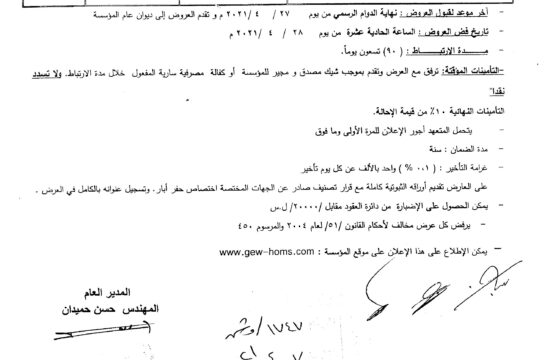 - آخر موعد لقبول العروض : نهاية الدوام الرسمي من يوم ٢٧ / ٤ / ٢٠٢١ م و تقدم العروض إلى ديوان عام المؤسسة
- تاريخ فض العروض : الساعة الحادية عشرة من يوم ٢٨ / ٤ / ٢٠٢١ م
- مـدة الارتبـاط : (٩٠) تسعون يوماً.
-التأمينات المؤقتة: ترفق مع العرض وتقدم بموجب شيك مصدق و مجير للمؤسسة أو كفالة مصرفية سارية المفعول خلال مدة الارتباط. ولا تسدد
نقدا"
التأمينات النهائية ١٠٪ من قيمة الإحالة.
- يتحمل المتعهد أجور الإعلان للمرة الأولى وما فوق
- مدة الضمان : سنة
- غرامة التأخير : (٠.١ %) واحد بالألف عن كل يوم تأخير
- على العارض تقديم أوراقه الثبوتية كاملة مع قرار تصنيف صادر عن الجهات المختصة اختصاص حفر أبار. وتسجيل عنوانه بالكامل في العرض .
- يمكن الحصول على الإضبارة من دائرة العقود مقابل /٢٠٠٠٠/ ل.س
- يرفض كل عرض مخالف لأحكام القانون /٥١/ لعام ٢٠٠٤ والمرسوم ٤٥٠
- يمكن الإطلاع على هذا الإعلان على موقع المؤسسة : www.gew-homs.com
المدير العام
المهندس حسن حميدان
١٧٤٧/